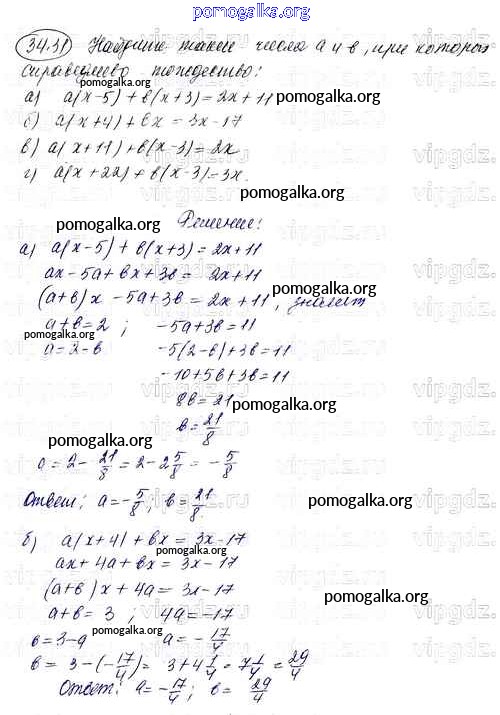 pomogalka.org
34.31 Найдите такие числа a и b, при которых
справедливо тождество:
pomogalka.org
а) a(x-5)+b(x+3)=2x+11 pomogalka.org
б) a(x+4)+bx=3x-17
в) a(x+11)+b(x-3)=2x
г) a(x+22)+b(x-3)=3x.
pomogalka.org
pomogalka.org Решение:
а) a(x-5)+b(x+3)=2x+11
ax-5a+bx+3b=2x+11
pomogalka.org
(a+b)x-5a+3b=2x+11, значит
a+b=2; -5a+3b=11
pomogalka.org
a=2-b -5(2-b)+3b=11
-10+5b+3b=11
8b=21
pomogalka.org
b=21/8
pomogalka.org
a=2-21/8=2-2 5/8=-5/8
Ответ: a=-5/8; b=21/8.
pomogalka.org
б) a(x+4)+bx=3x-17
pomogalka.org
ax+4a+bx=3x-17
(a+b)x+4a=3x-17
a+b=3; 4a=-17
pomogalka.org
b=3-a a=-17/4
b=3-(-17/4)=3+4 1/4=7 1/4=29/4
pomogalka.org
Ответ: a=-17/4; b=29/4